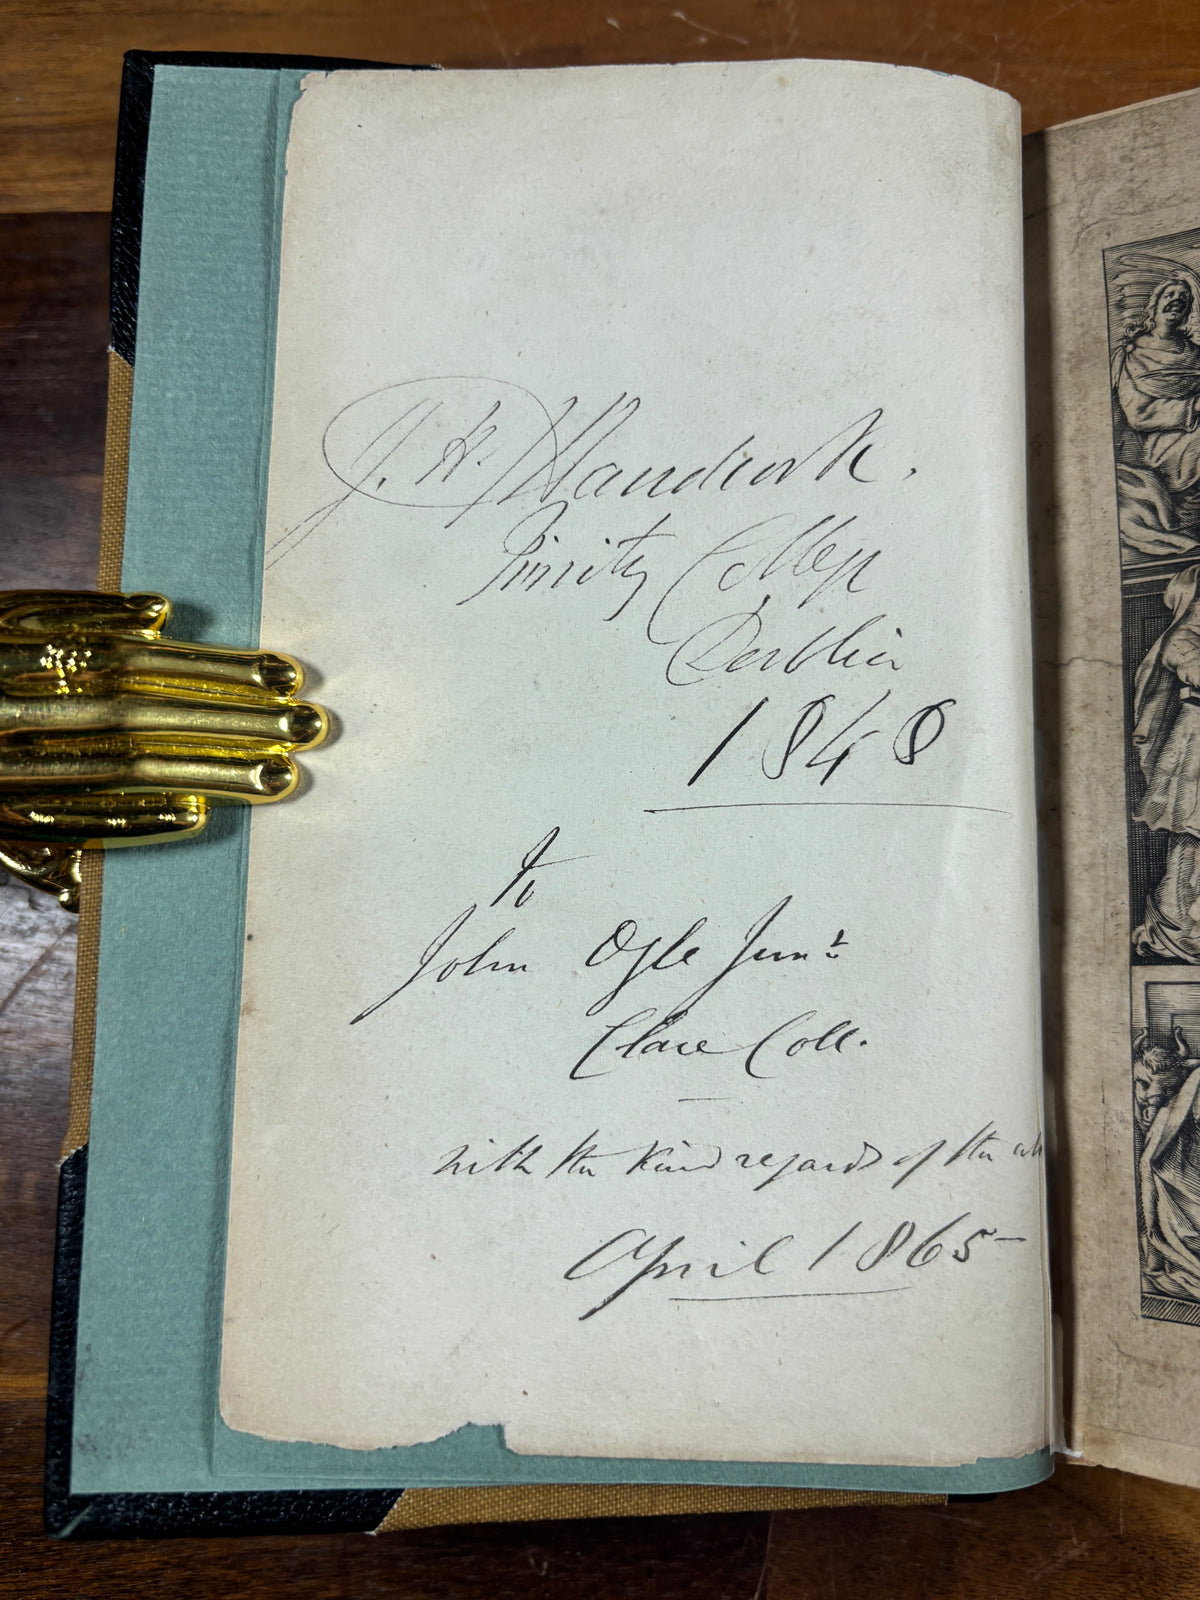 J. H. Handcock.
Trinity College
Dublin
1848
To
John Ogle Junr
Clare Coll.
with the kind regards of the
April 1865